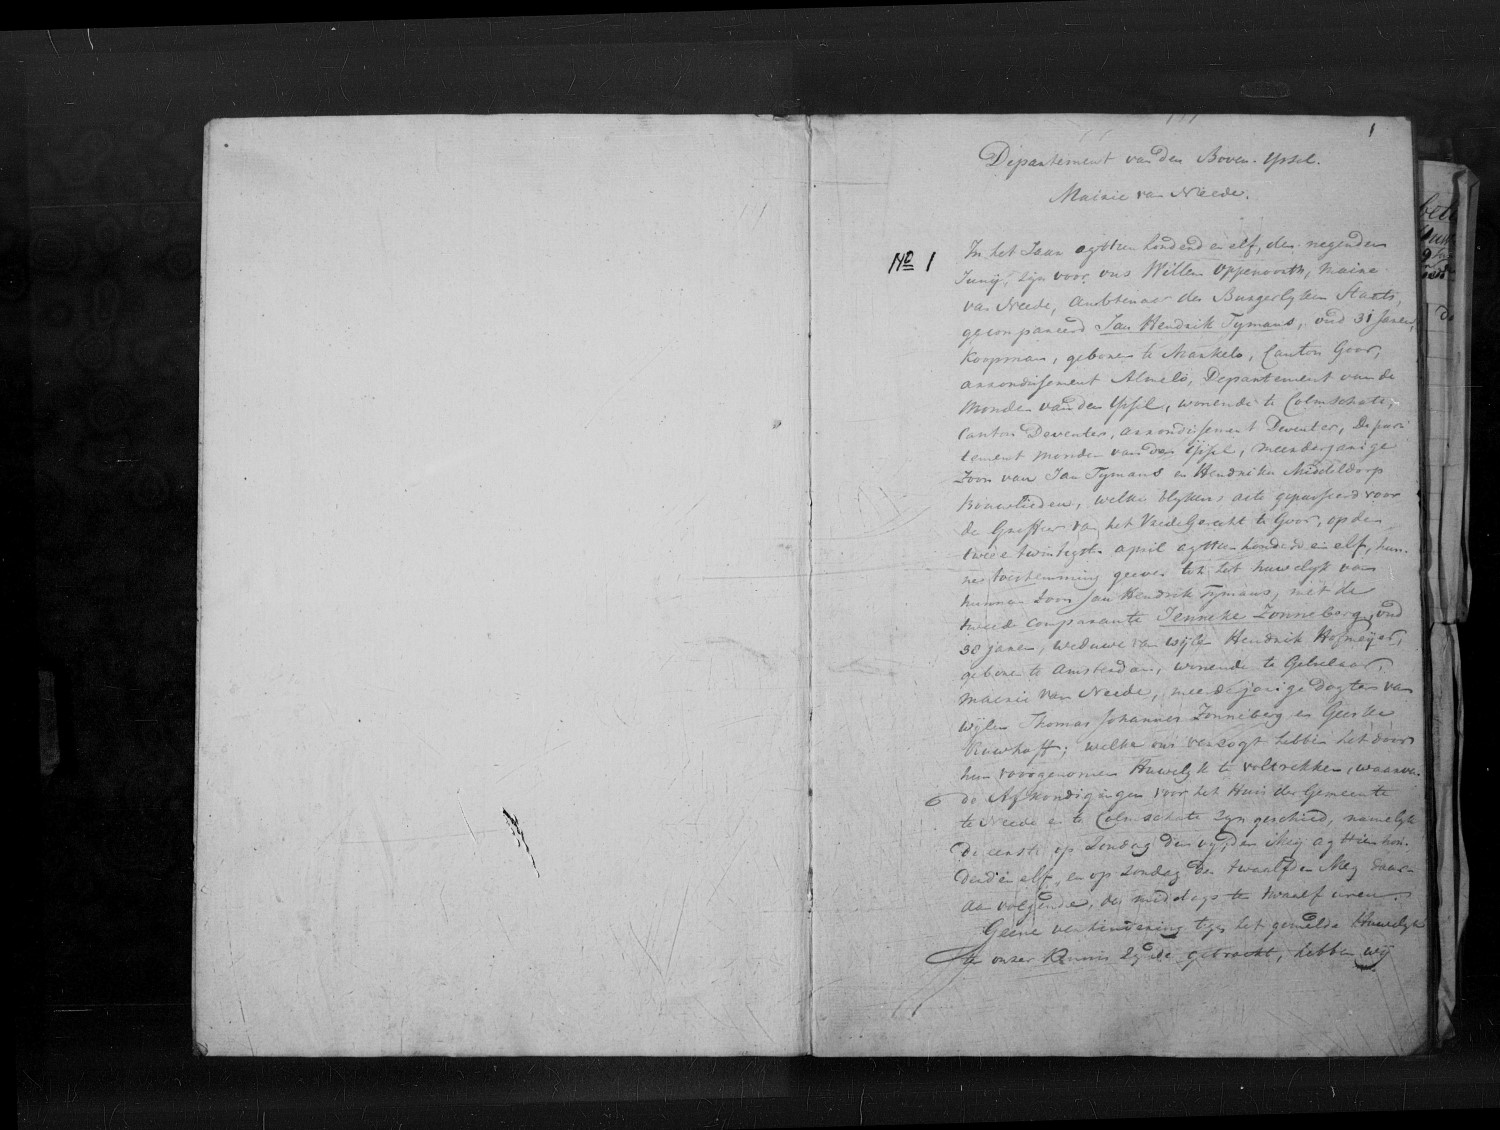 1
Departement van den Boven-Yssel.
Mairie van Neede.
No 1
In het Jaar agttien honderd en elf, den negenden
Junij, zijn voor ons Willem Oppenoorth, Maire
van Neede, Ambtenaar der Burgerlyken Staats,
gecompareerd Jan Hendrik Tymans, oud 31 Jaren,
Koopman, geboren te Markelo, Canton Goor,
arrondissement Almelo, Departement van de
Monden van den Yssel, wonende te Colmschate,
Canton Deventer, arrondissement Deventer, Depar
tement monden van den Yssel, meerderjarige
Zoon van Jan Tymans en Hendrika Middeldorp
Bouwlieden, welke blykens acte gepasseerd voor
de Greffier van het Vrede Geregt te Goor, op den
twee en twintigste april agttien honderd en elf, hun-
ne toestemming geven tot het huwelyk van
hunnen Zoon Jan Hendrik Tymans, met de
tweede comparante Jenneke Zonneberg, oud
38 jaren, weduwe van wijlen Hendrik Hofmeijer,
geboren te Amsterdam, wonende te Gelselaar,
Mairie van Neede, meerderjarige dogter van
wijlen Thomas Johannes Zonneberg en
welke ons verzogt hebben het door
hun voorgenomen Huwelyk te voltrekken, waarvan
de Afkondigingen voor het Huis der Gemeente
te Neede en te Colmschate zyn geschied, namelyk
De eerste op Zondag den vyfden Mey agttien hon-
derd en elf, en op Zondag den twaalfden Mey daar-
aan volgende, des middags te twaalf uren.
Geene verhindering tegen het gemelde Huwelyk
te onzer kennis zynde gebracht, hebben wij